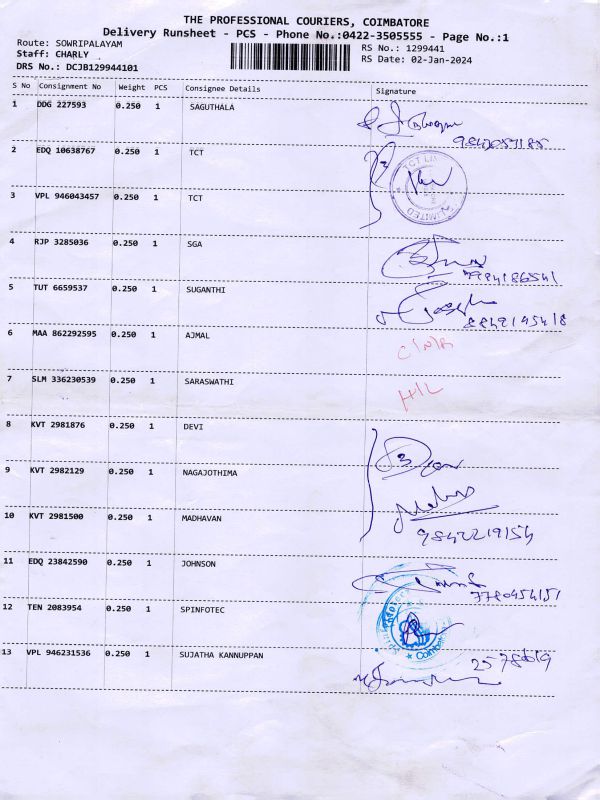 THE PROFESSIONAL COURIERS, COIMBATORE
Delivery Runsheet - PCS - Phone No.:0422-3505555 - Page No.:1
Route: SOWRIPALAYAM
Staff: CHARLY
DRS No.: DCJB129944101
RS No.: 1299441
RS Date: 02-Jan-2024
S No Consignment No Weight PCS Consignee Details Signature
1 DDG 227593 0.250 1 SAGUTHALA
2 EDQ 10638767 0.250 1 TCT
TCT LIMITED
3 VPL 946043457 0.250 1 TCT
4 RJP 3285036 0.250 1 SGA
5 TUT 6659537 0.250 1 SUGANTHI
6 MAA 862292595 0.250 1 AJMAL
7 SLM 336230539 0.250 1 SARASWATHI
H/L
8 KVT 2981876 0.250 1 DEVI
9 KVT 2982129 0.250 1 NAGAJOTHIMA
10 KVT 2981500 0.250 1 MADHAVAN
9842219154
11 EDQ 23842590 0.250 1 JOHNSON
12 TEN 2083954 0.250 1 SPINFOTEC
13 VPL 946231536 0.250 1 SUJATHA KANNUPPAN